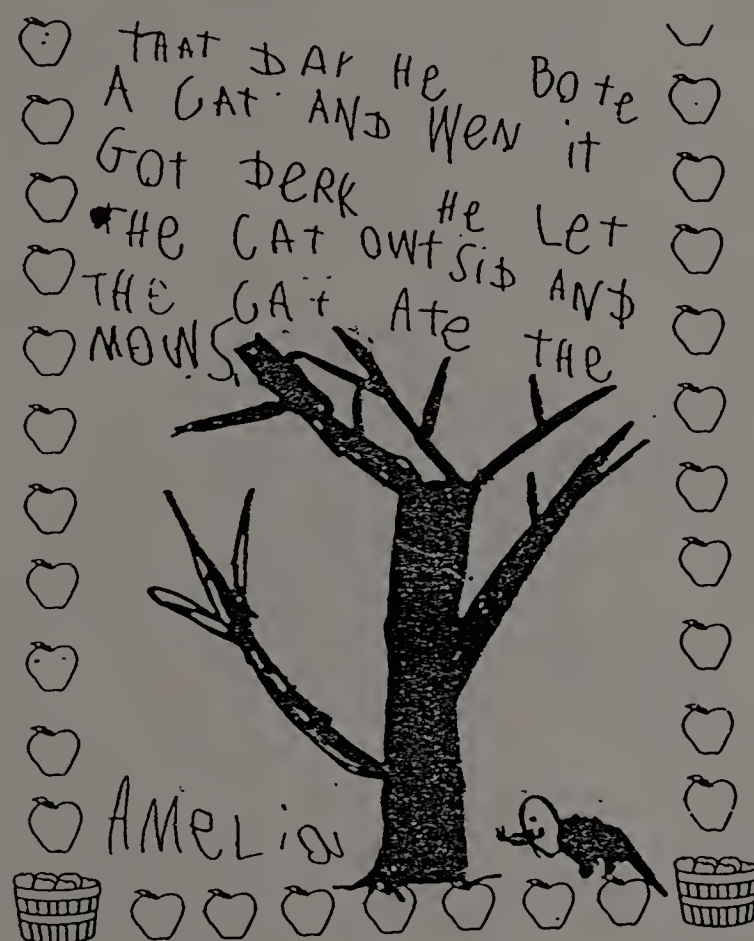 THAT DAY HE BOte
A CAt AND WeN it
GOt DeRK He Let
tHe CAt OWtSiD AND
THE CAt Ate tHe
MOWS.
AMeLia